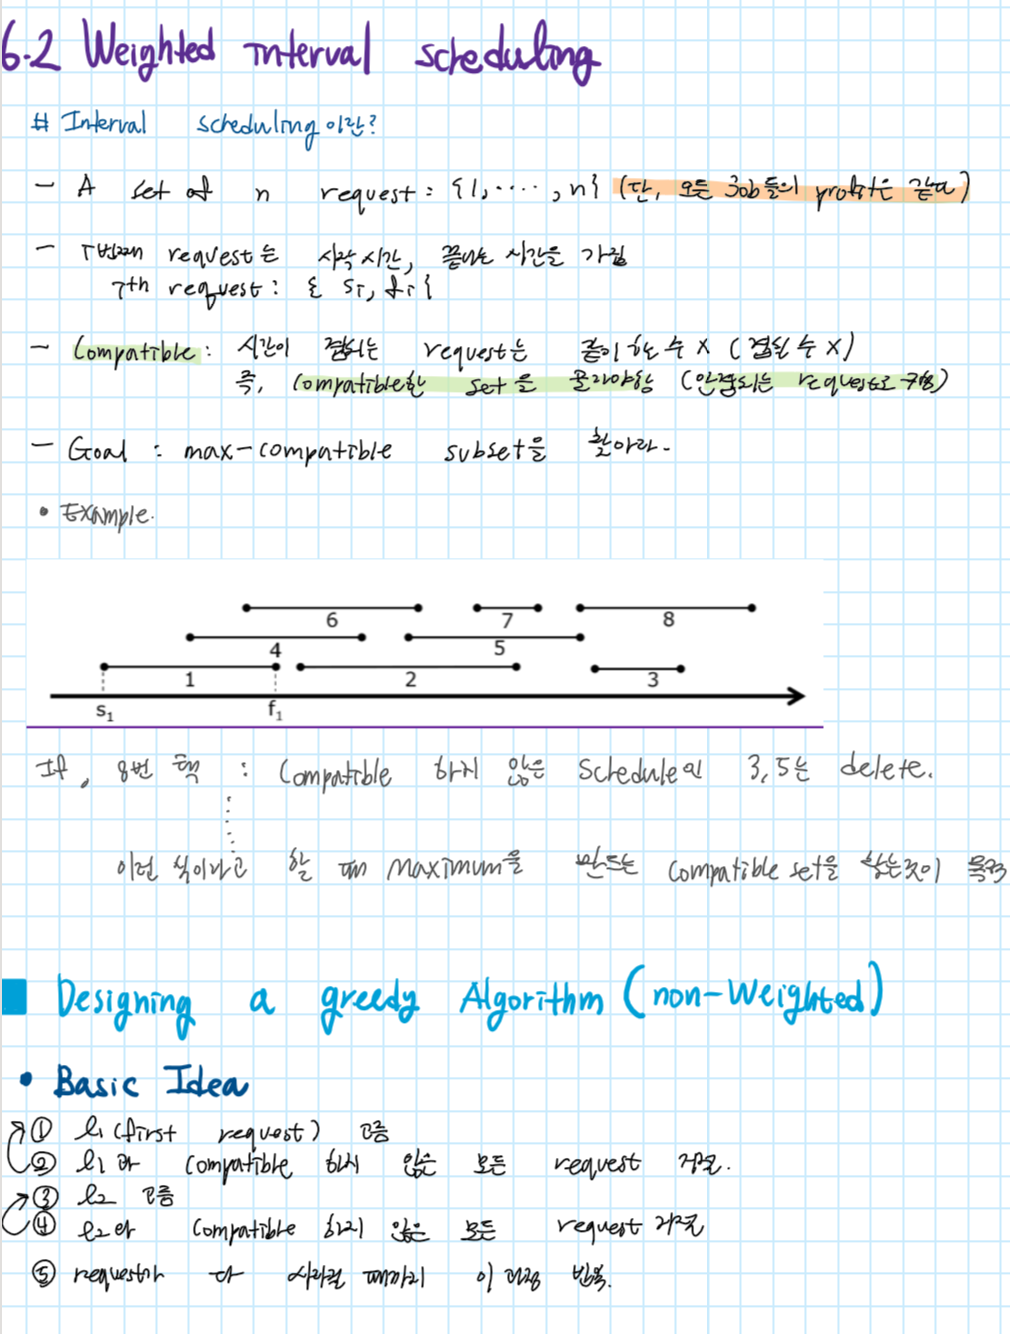 6.2 Weighted interval scheduling
# Interval scheduling 이란?
- A set of n request : {1, ...., n} (단, 모든 Job들의 profit은 같다)
- i번째 request는 시작 시간, 끝나는 시간을 가짐
ith request : { si, fi }
- Compatible : 시간이 겹치는 request는 같이 할 수 X ( 겹칠 수 X )
즉, compatible한 set을 골라야함 (안겹치는 request로 구성)
- Goal : max-compatible subset을 찾아라.
• Example.
6 7 8
4 5
1 2 3
s1 f1
If, 8번 픽 : Compatible 하지 않은 Schedule인 3, 5는 delete.
이런 식이라고 할 때 maximum을 만드는 compatible set을 찾는것이 목적
Designing a greedy Algorithm (non-Weighted)
• Basic Idea
① l1 (first request) 고름
② l1과 compatible 하지 않은 모든 request 거절.
③ l2 고름
④ l2와 compatible 하지 않은 모든 request 거절
⑤ request가 다 사라질 때까지 이 과정 반복.